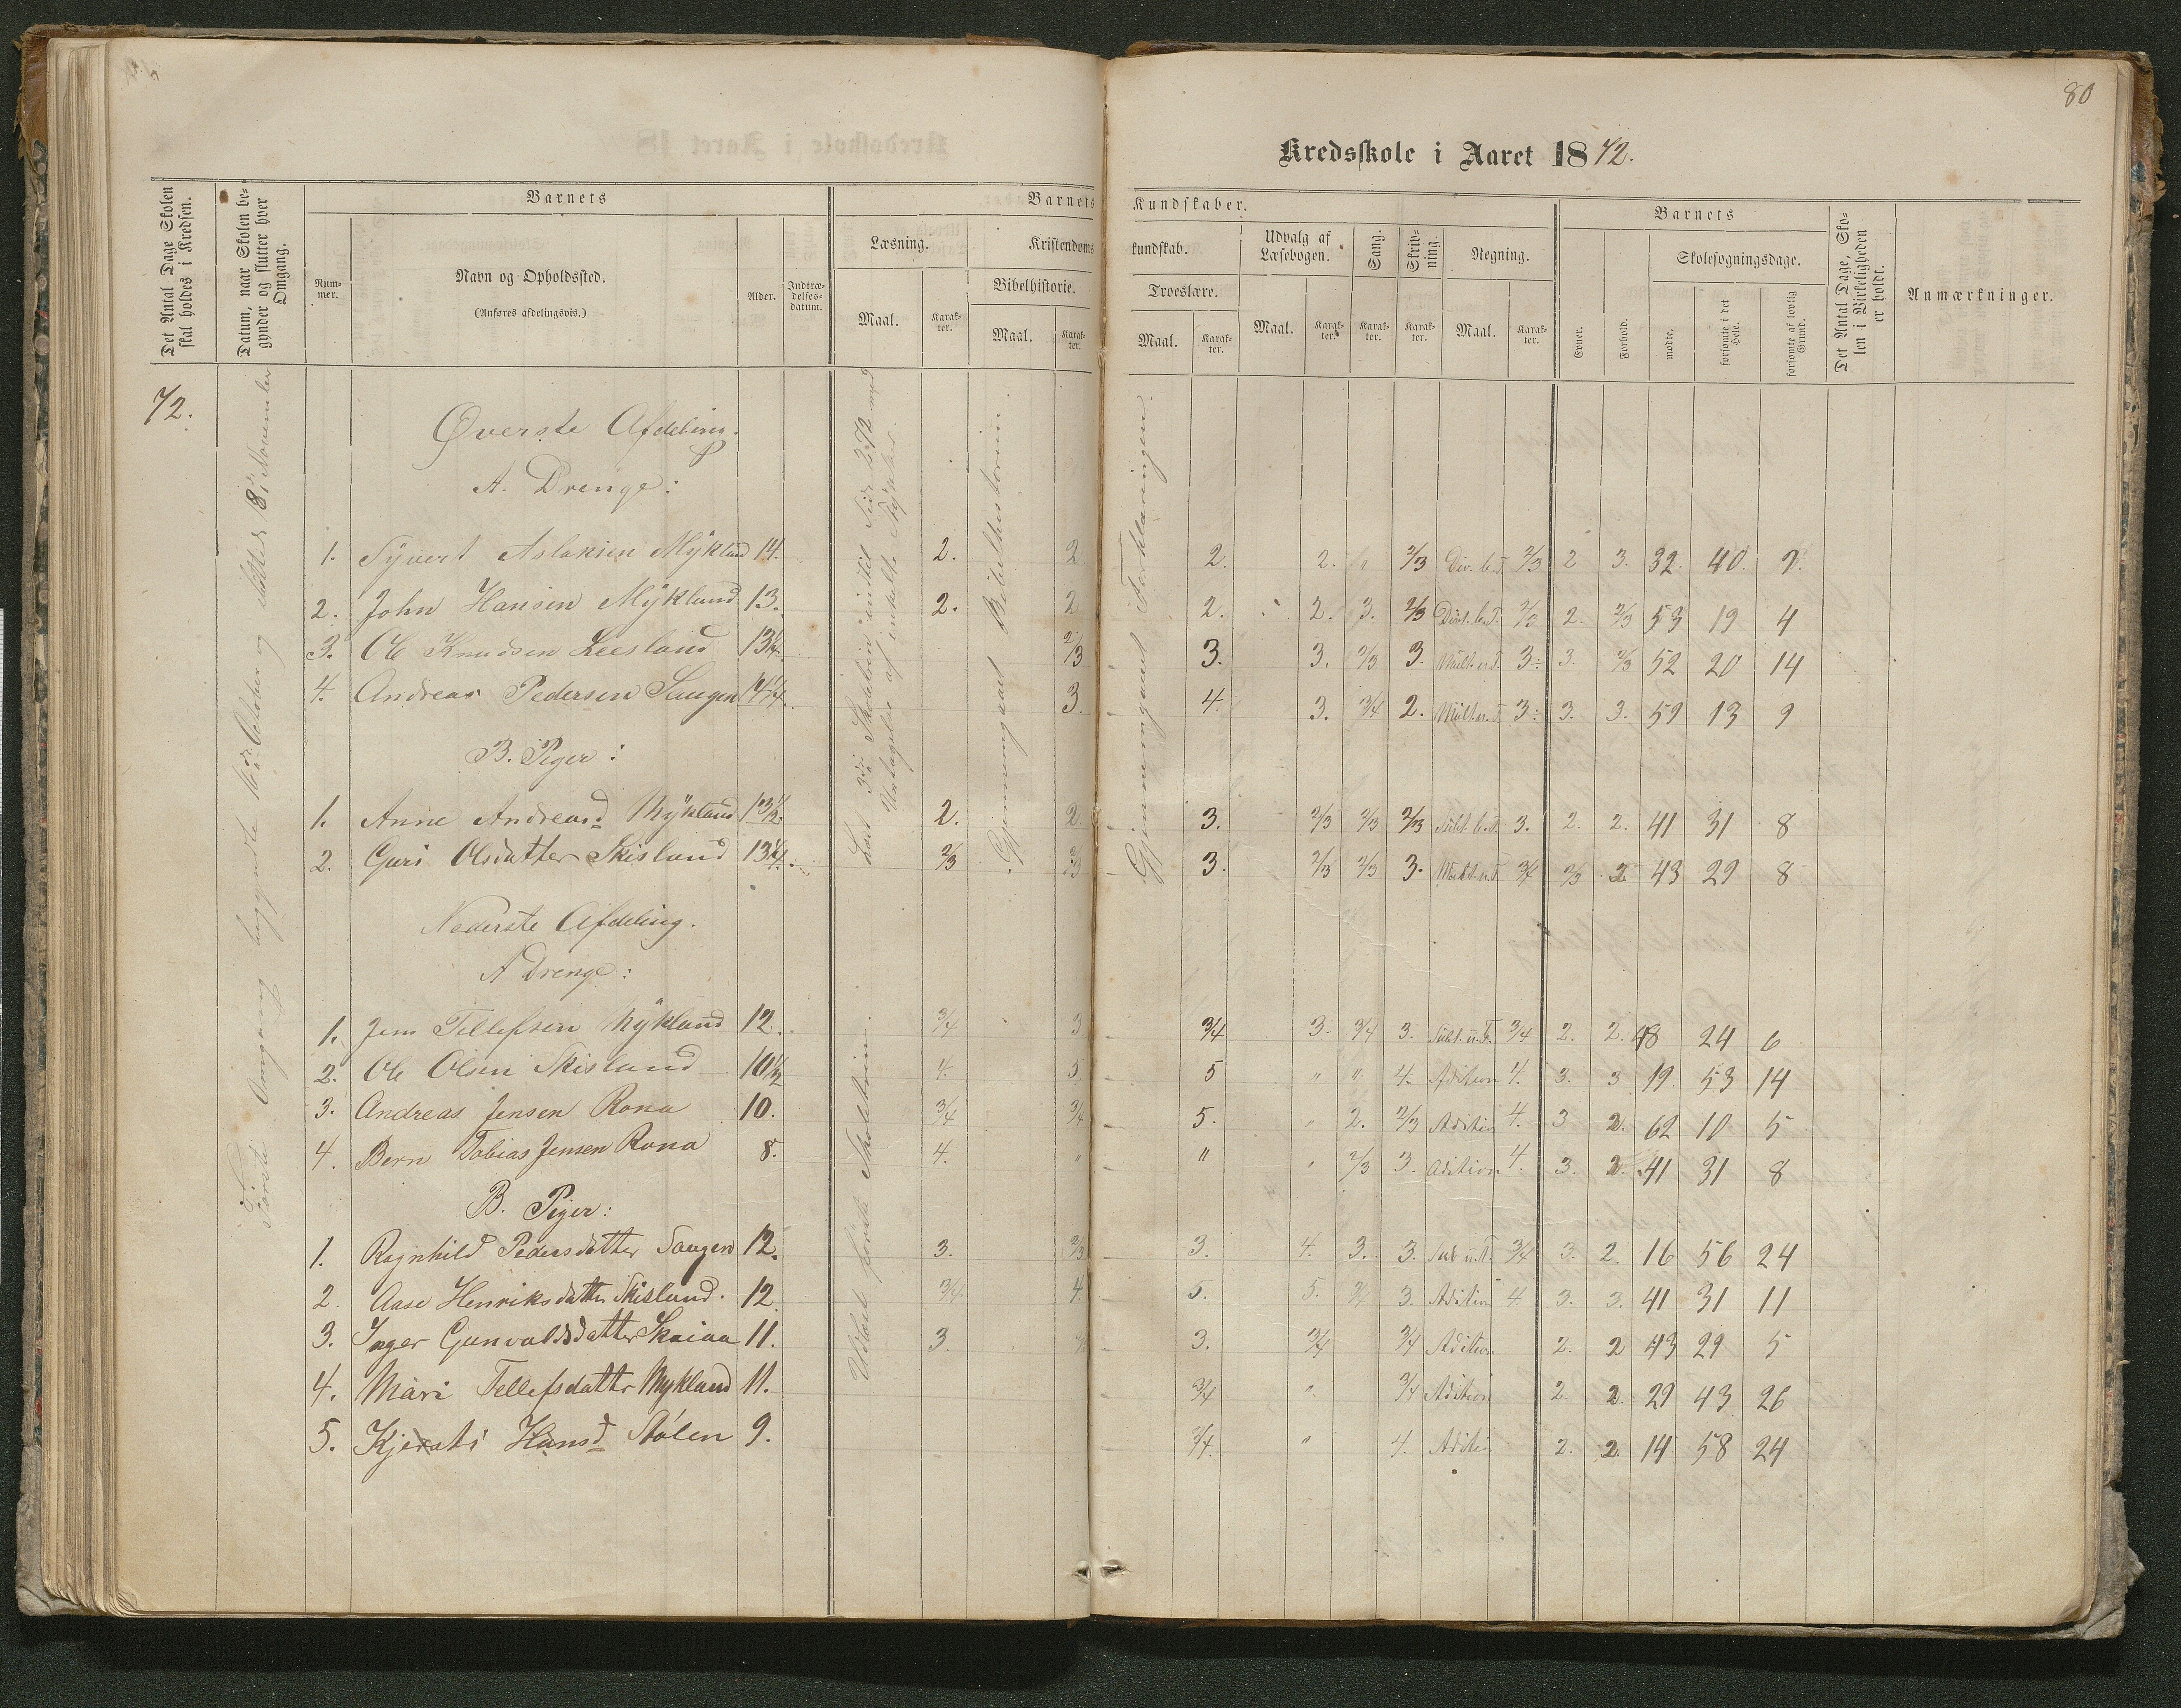 80
Kredsskole i Aaret 1872.
Det Antal Dage Skolen skal holdes i Kredsen.
Datum, naar Skolen begynder og slutter hver Omgang.
Barnets
Nummer.
Navn og Opholdssted.
(Anføres afdelingsvis.)
Alder.
Indtrædelsesdatum.
Barnets Kundskaber.
Læsning.
Maal.
Karakter.
Kristendomskundskab.
Bibelhistorie.
Maal.
Karakter.
Troeslære.
Maal.
Karakter.
Udvalg af Læsebogen.
Maal.
Karakter.
Sang.
Karakter.
Skrivning.
Karakter.
Regning.
Maal.
Karakter.
Barnets
Evner.
Forhold.
Skolesøgningsdage.
mødte.
forsømte i det Hele.
forsømte af lovlig Grund.
Det Antal Dage, Skolen i Virkeligheden er holdt.
Anmærkninger.
72.
Første Omgang begyndte 16de October og sluttede 8de November
Gjennemgaaet Bibelhistorien.
Gjennemgaaet Forklaringen.
Øverste Afdeling.
A. Drenge:
1. Syvert Aslaksen Mykland 14. 2. 2 2. 2. " 2/3 Div. b.T. 2/3 2 3. 32. 40. 7.
2. John Hansen Mykland 13. 2. 2 2. 2. 3. 2/3 Div. b.T. 2/3 2. 2/3 53 19 4
3. Ole Knudsen Leesland 13 1/4. 2/3 3. 3. 2/3 3. Mult. u.T. 3 3. 2/3 52 20 14
4. Andreas Pedersen Saugen 14 1/4. 3. 4. 3. 3/4 2. Mult. u.T. 3 3. 3. 59 13 9
B. Piger:
1. Anne Andreasd Mykland 13 1/2. 2. 2. 3. 2/3 2/3 2/3 Subt. b.T. 3. 2. 2. 41 31 8
2. Guri Olsdatter Skisland 13 1/4. 2/3 2/3 3. 2/3 2/3 3. Mult. u.T. 3/4 2/3 2 43 29 8
Nederste Afdeling.
A Drenge:
1. Jens Tellefsen Mykland 12. 3/4 3 3/4 3. 3/4 3. Subt. u.T. 3/4 2. 2. 48 24 6
2. Ole Olsen Skisland 10 1/2 4. 5 5 " " 4. Adition 4. 3. 3 19. 53 14
3. Andreas Jensen Rona 10. 3/4 3/4 5. " 2. 2/3 Aditio 4. 3 2. 62 10 5
4. Bern Tobias Jensen Rona 8. 4. " " " 2/3 3. Adition 4. 3. 2. 41 31 8
B. Piger:
1. Ragnhild Pedersdatter Saugen 12. 3. 2/3 3. 4. 3. 3. Sub u.T. 3/4 3. 2. 16 56 24
2. Aase Henriksdatter Skisland. 12. 3/4. 4. 5. 5. 3. Adition 4. 3. 3. 41 31 11
3. Inger Gunvaldsdatter 11. 3. 3. 3/4 3/4 Adition 2. 2 43 29 5
4. Mari Tellefsdatter Mykland 11. 3/4 " 3/4 Adition 2. 2 29 43 26
5. Kjersti Hansd Stólen 9. 3/4. " 4. Aditio 2. 2. 14 58 24